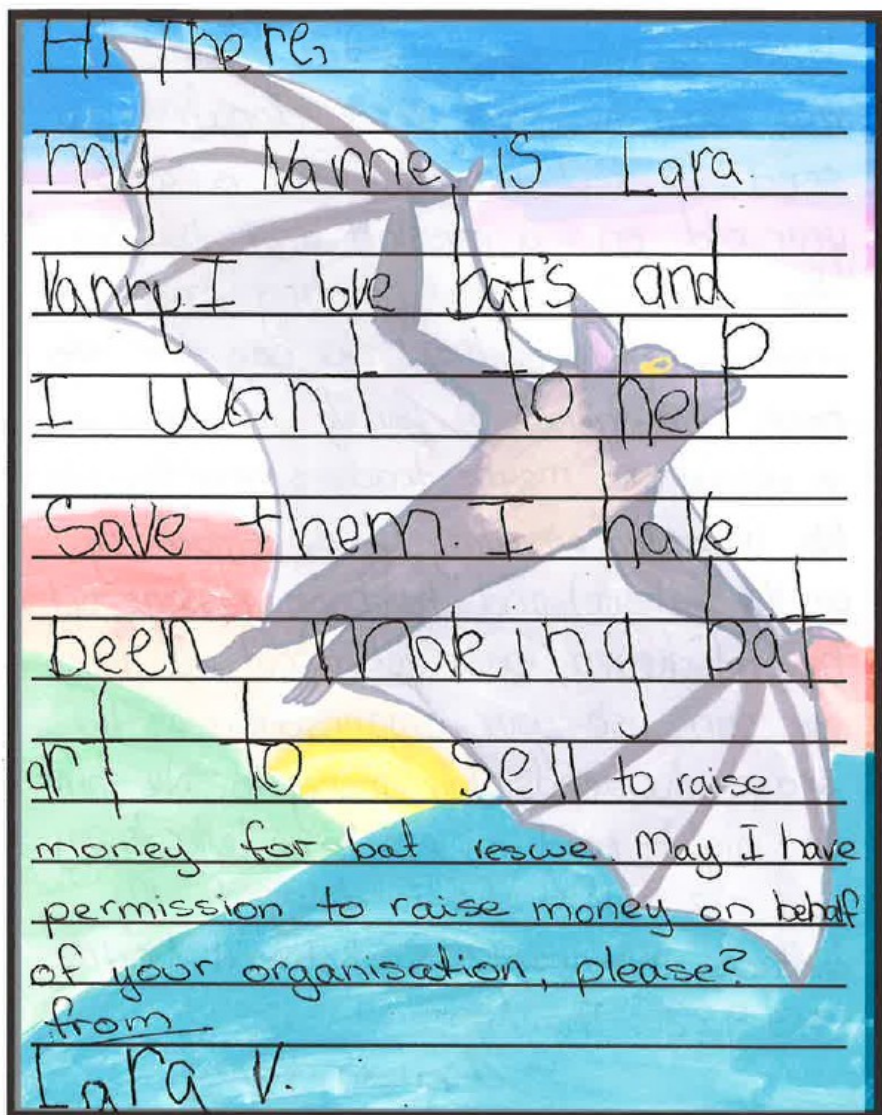 Hi There,
my Name is Lara.
Vanry. I love bat's and
I want to help
Save them. I have
been making bat
art to Sell to raise
money for bat rescue. May I have
permission to raise money on behalf
of your organisation, please?
from
Lara V.